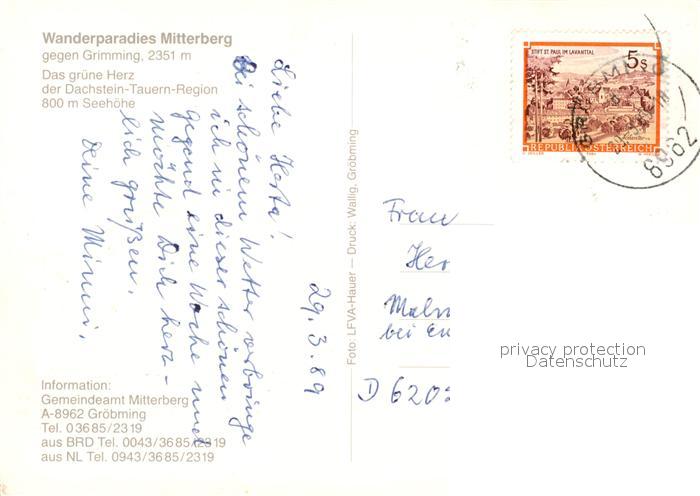 Wanderparadies Mitterberg
gegen Grimming, 2351 m
Das grüne Herz
der Dachstein-Tauern-Region
800 m Seehöhe
Liebe Herta!
Bei schönem Wetter verbringe
ich in dieser schönen
Gegend eine Woche und
möchte Dich herz-
lich grüßen.
Deine Minni.
29.3.89
Information:
Gemeindeamt Mitterberg
A-8962 Gröbming
Tel. 03685/2319
aus BRD Tel. 0043/3685/2319
aus NL Tel. 0943/3685/2319
Foto: LFVA-Hauer — Druck: Wallig, Gröbming
STIFT ST. PAUL IM LAVANTTAL
5s
REPUBLIK ÖSTERREICH
8962
Frau
Her
bei
D 620
privacy protection
Datenschutz